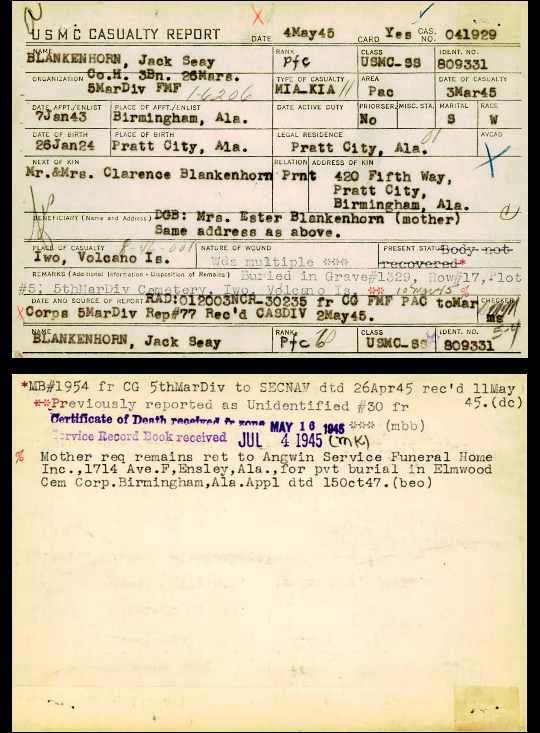 USMC CASUALTY REPORT DATE 4May45 CARD Yes CAS. NO. 041929
NAME RANK CLASS IDENT. NO.
BLANKENHORN, Jack Seay Pfc USMC-SS 809331
ORGANIZATION Co.H. 3Bn. 26Mars. TYPE OF CASUALTY AREA DATE OF CASUALTY
5MarDiv FMF 1-6206 MIA-KIA 11 Pac 3Mar45
DATE APPT./ENLIST PLACE OF APPT./ENLIST DATE ACTIVE DUTY PRIORSER. MISC. STA. MARITAL RACE
7Jan43 Birmingham, Ala. No S W
DATE OF BIRTH PLACE OF BIRTH LEGAL RESIDENCE 01 AVCAD
26Jan24 Pratt City, Ala. Pratt City, Ala.
NEXT OF KIN RELATION ADDRESS OF KIN
Mr.&Mrs. Clarence Blankenhorn Prnt 420 Fifth Way,
Pratt City,
Birmingham, Ala.
BENEFICIARY (Name and Address) DGB: Mrs. Ester Blankenhorn (mother)
Same address as above.
PLACE OF CASUALTY NATURE OF WOUND PRESENT STATUS Body not
Iwo, Volcano Is. Wds multiple *** recovered*
REMARKS (Additional Information - Disposition of Remains) Buried in Grave#1329, Row#17, Plot
#5; 5thMarDiv Cemetery, Iwo, Volcano Is. ** 10May45 %
DATE AND SOURCE OF REPORT RAD:012003NCR-30235 fr CG FMF PAC toMar CHECKER
Corps 5MarDiv Rep#77 Rec'd CASDIV 2May45. ms
NAME RANK CLASS IDENT. NO.
BLANKENHORN, Jack Seay Pfc USMC-SS 809331
*MB#1954 fr CG 5thMarDiv to SECNAV dtd 26Apr45 rec'd 11May
**Previously reported as Unidentified #30 fr 45.(dc)
Certificate of Death received fr MAY 16 1945 *** (mbb)
Service Record Book received JUL 4 1945 (MK)
% Mother req remains ret to Angwin Service Funeral Home
Inc.,1714 Ave.F,Ensley,Ala.,for pvt burial in Elmwood
Cem Corp.Birmingham,Ala.Appl dtd 15Oct47.(beo)